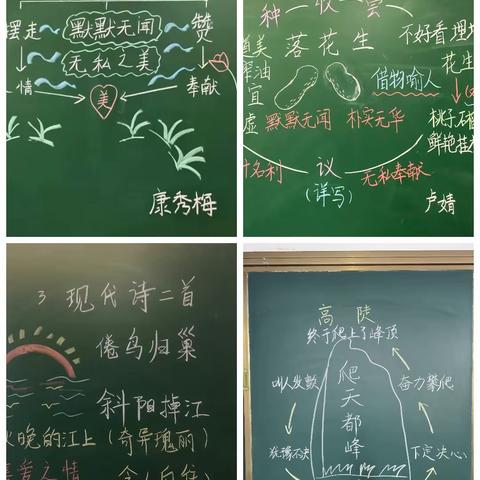 摆走 默默无闻 赞
无私之美
情 美 奉献
康秀梅
种 收 尝
落花生 不好看 埋
宜 借物喻人 花生
虚 默默无闻 朴实无华 桃子 石榴
鲜艳 挂
名利 议 无私奉献
(详写) 卢婧
3 现代诗二首
倦鸟归巢
斜阳掉江
火晚的江上 (奇异瑰丽)
喜爱之情
高 陡
终于爬上了峰顶
叫人发颤 爬天都峰 奋力攀爬
犹豫不决 下定决心